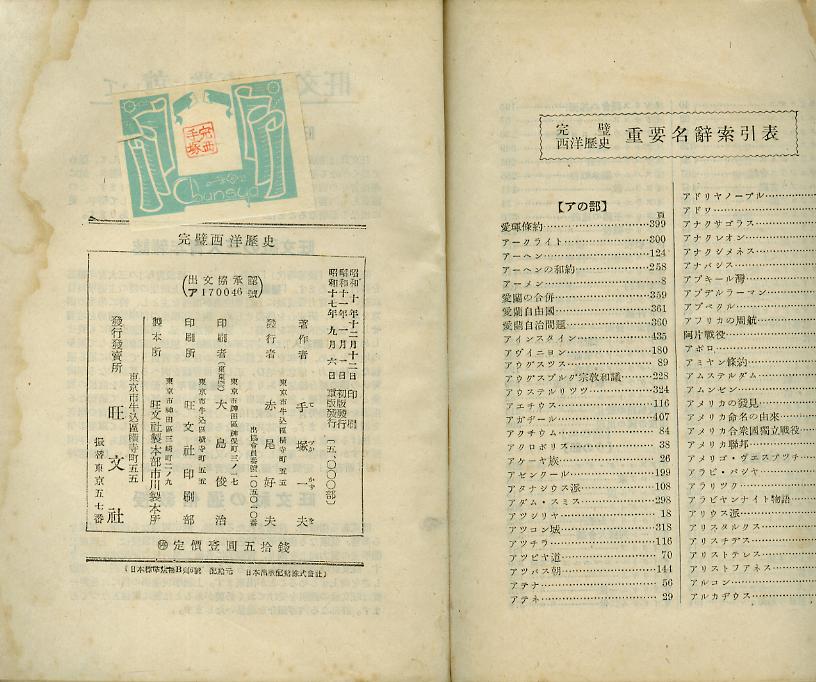 完西
手塚
Chansya
完璧西洋歴史
(出文協承認
ア170046號)
昭和十年十二月十二日印刷
昭和十一年一月一日初版發行
昭和十七年九月六日重版發行
[五、〇〇〇部]
著作者 手塚一夫
てづかかずを
東京市牛込區横寺町五五
發行者 赤尾好夫
出協會員番號一〇五〇一〇
東京市神田區神保町三ノ一七
印刷者(東東忠) 大島俊治
東京市牛込區横寺町五五
印刷所 旺文社印刷部
東京市神田區三崎町二ノ九
製本所 旺文社製本部市川製本所
發行發賣所
東京市牛込區横寺町五五
旺文社
振替東京五七番
定價壹圓五拾錢
完璧
西洋歷史
重要名辭索引表
【アの部】
頁
愛琿條約 399
アークライト 300
アーヘン 124
アーヘンの和約 258
アーメン 8
愛蘭の合併 359
愛蘭自由國 361
愛蘭自治問題 360
アインスタイン 435
アヴイニヨン 180
アウグスツス 89
アウグスブルグ宗教和議 228
アウステルリツツ 324
アエチウス 116
アガヂール 407
アクチウム 84
アクロポリス 38
アケーヤ族 26
アゼンクール 199
アタナジウス派 108
アダム・スミス 298
アツシリヤ 18
アツコン城 318
アツチラ 116
アツピヤ道 70
アツバス朝 144
アテナ 56
アテネ 29
アドリヤノープル
アドワ
アナクサゴラス
アナクレオン
アナクシメネス
アナバシス
アブキール灣
アブデルラーマン
アブベクル
アフリカの周航
阿片戰役
アポロ
アミヤン條約
アムステルダム
アムンゼン
アメリカの發見
アメリカ命名の由來
アメリカ合衆國獨立戰役
アメリカ聯邦
アメリゴ・ヴエスプツチ
アラビ・パシヤ
アラリツク
アラビヤンナイト物語
アリウス派
アリスタルクス
アリスチデス
アリストテレス
アリストフアネス
アルコン
アルカヂウス